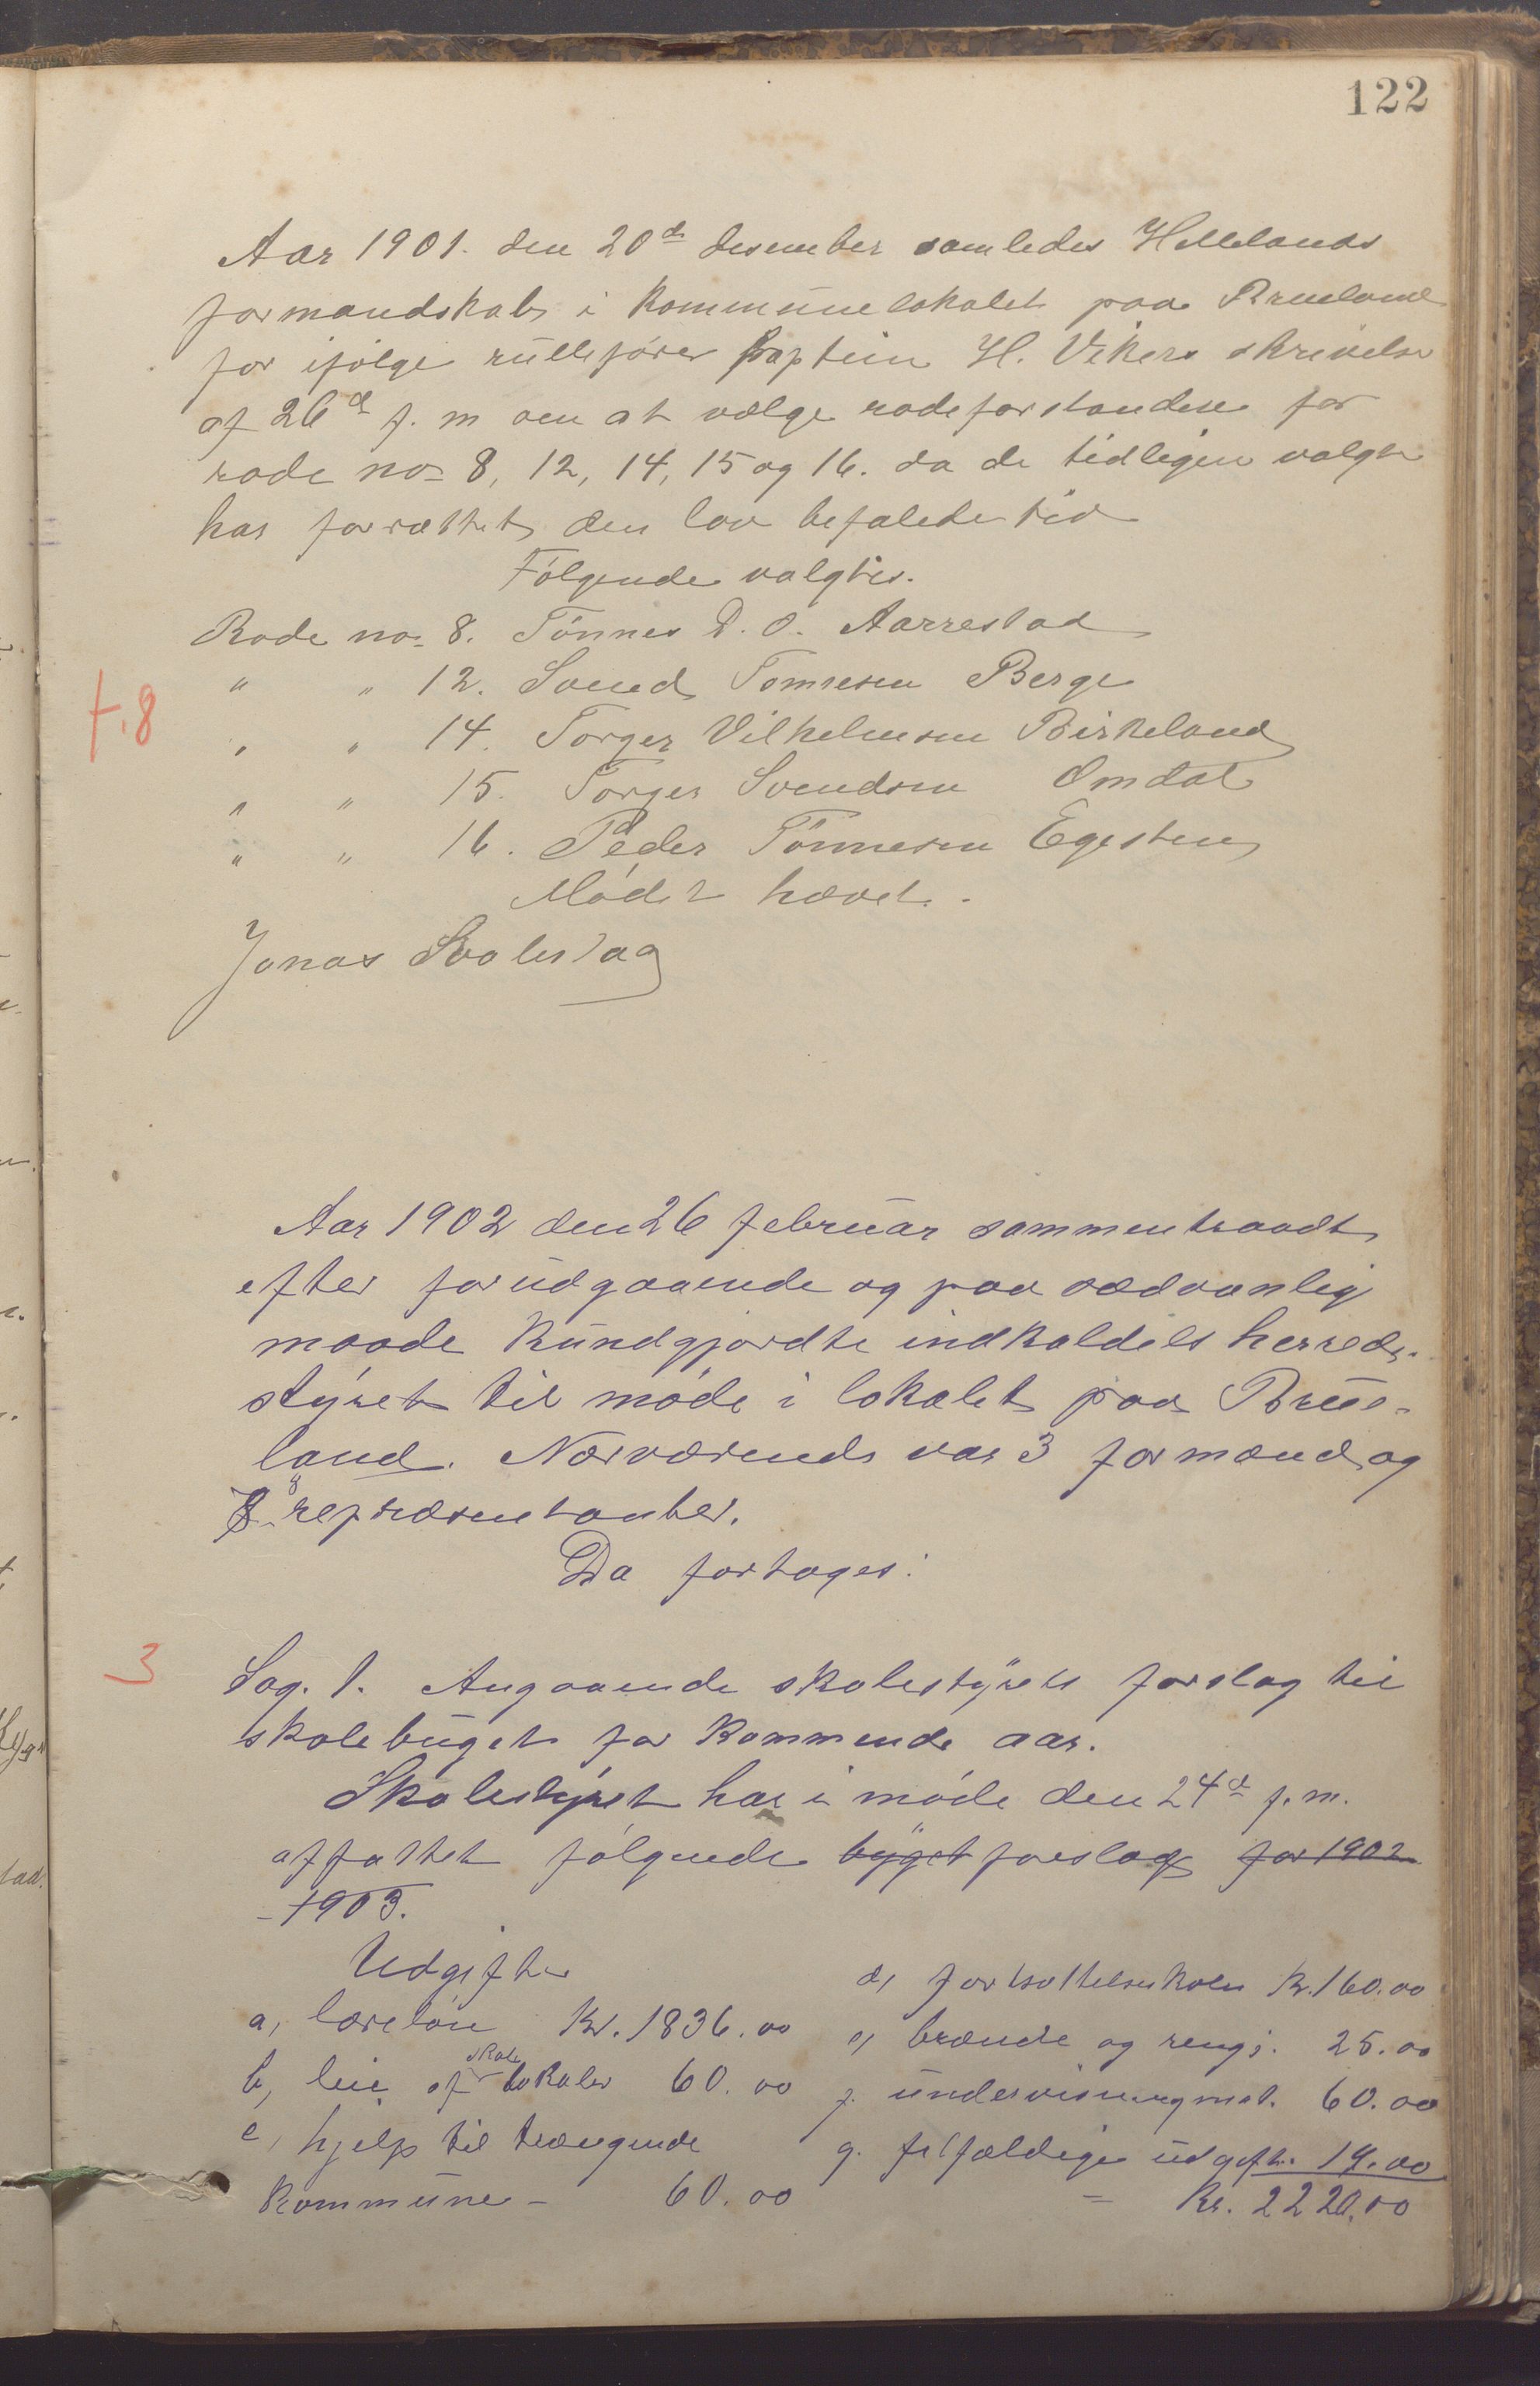 122
Aar 1901. den 20d desember samledes Hellelands
formandskab i kommunelokalet paa Brueland
for ifølge rullefører kaptein H. Vikers skrivelse
af 26d f. m om at vælge rodeforstandere for
rode no 8, 12, 14, 15 og 16. da de tidligere valgte
har forrættet den lov befalede tid
Følgende valgtes.
Rode no 8. Tønnes D. O. Aarrestad
" " 12. Svend Tomresen Berge
t.8
" " 14. Torger Vilhelmsen Birkeland
" " 15. Torger Svendsen Omdal
" " 16. Peder Tønnesen Egesten
Mødet hævet.
Jonas Svalestag
Aar 1902 den 26 februar sammentraadt
efter forudgaaende og paa sædvanlig
maade kundgjordte indkaldels herreds-
styret til møde i lokalet paa Brue-
land. Nærværende var 3 formænd og
8 repræsentanter.
Da fortages:
3
Sag. 1. Angaaende skolestyrets forslag til
skolebuget for kommende aar.
Skolestyret har i møde den 24d f. m.
affattet følgende byget forslag for 1902
-1903.
Udgifter
a, læreløn Kr. 1836.00
b, leie af skole lokaler 60.00
c, hjelp til trængende
kommune - 60.00
d, fortsættelseskolen Kr. 160.00
e, brænde og rengj. 25.00
f. undervisningmat. 60.00
g. filfældige udgifter 19.00
= Kr. 2220.00